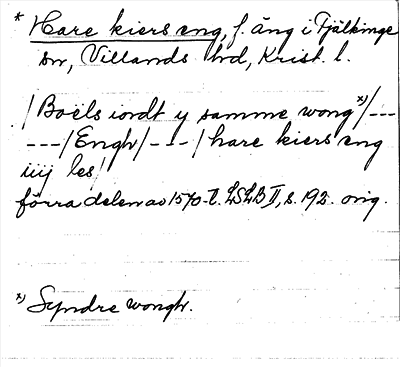 * Hare kiers eng, f. äng i Fjälkinge
sn, Villands hd, Krist. l.
/Boëls iordt y samme wong x)/---
---/Engh/---/hare kiers eng
iiij les/
förra delen av 1570-t. LSLB II, s. 192. orig.
x) Syndre wongh.